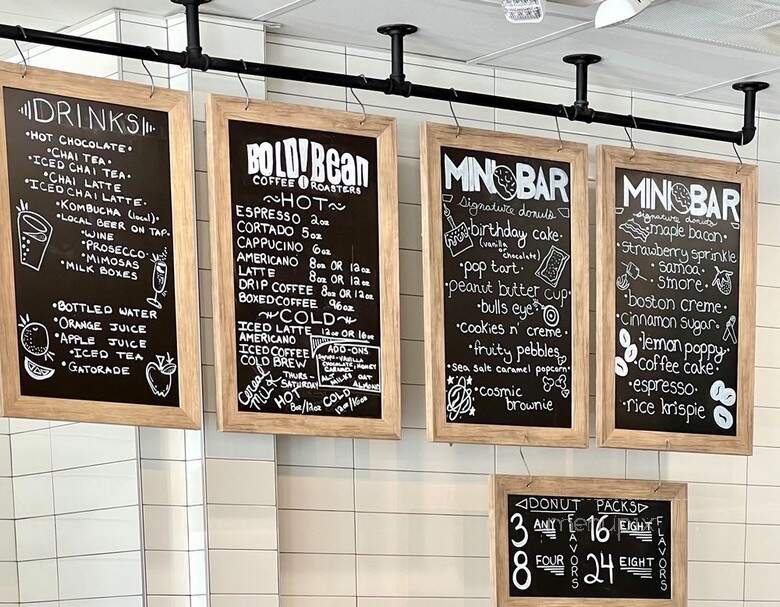 DRINKS
•HOT CHOCOLATE•
•CHAI TEA•
ICED CHAI TEA•
•CHAI LATTE
•ICED CHAI LATTE•
•KOMBUCHA (local)•
•LOCAL BEER ON TAP•
•WINE
•PROSECCO•
•MIMOSAS
•MILK BOXES
•BOTTLED WATER
•ORANGE JUICE
•APPLE JUICE
•ICED TEA
•GATORADE
BOLD! Bean
COFFEE ROASTERS
HOT
ESPRESSO 2oz
CORTADO 5oz
CAPPUCINO 6oz
AMERICANO 8oz OR 12oz
LATTE 8oz OR 12oz
DRIP COFFEE 8oz OR 12oz
BOXED COFFEE 96oz
COLD
ICED LATTE 12oz OR 16oz
AMERICANO
ICED COFFEE
COLD BREW
ADD-ONS
VANILLA
CHOCOLATE, HONEY
CARAMEL
ALT MILKS OAT
ALMOND
Cereal Milk
THURS-
SATURDAY
HOT 8oz/12oz
COLD 12oz/16oz
MINI BAR
signature donuts
•birthday cake•
(vanilla or chocolate)
•pop tart•
•peanut butter cup•
•bulls eye•
•cookies n' creme•
•fruity pebbles•
•sea salt caramel popcorn•
•cosmic brownie
MINI BAR
signature donuts
•maple bacon•
•strawberry sprinkle
•samoa•
s'more•
•boston creme•
•cinnamon sugar•
•lemon poppy•
•coffee cake•
•espresso•
•rice krispie
DONUT PACKS
3 ANY 16 EIGHT
8 FOUR 24 EIGHT
FLAVORS
FLAVORS
menupix